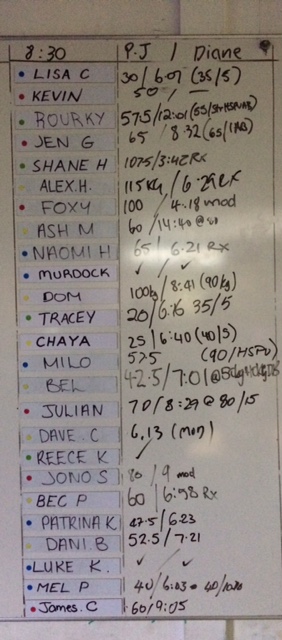 8:30 P.J / Diane
LISA C 30/6.07 (35/5)
KEVIN 50 / —
ROURKY 57.5/12:01
JEN G 65 / 8.32
SHANE H 107.5/3:42 RX
ALEX.H. 115kg / 6.29 RX
FOXY 100 / 4.18 mod
ASH M 60 /14:40 @
NAOMI H 65 / 6.21 Rx
MURDOCK ✓ ✓
DOM 100kg / 8:41 (90kg)
TRACEY 20/6:16 35/5
CHAYA 25 / 6:40 (40/5)
MILO 57.5 (90/HSPU)
BEL 42.5/7:01
JULIAN 70/8:29 @ 80/15
DAVE.C 6.13 (mod)
REECE K ✓
JONO S 80 / 9 mod
BEC P 60 / 6:98 Rx
PATRINA K 47.5/6:23
DANI.B 52.5/7.21
LUKE K. ✓ ✓
MEL P 40/6:03
James.C 60/9:05